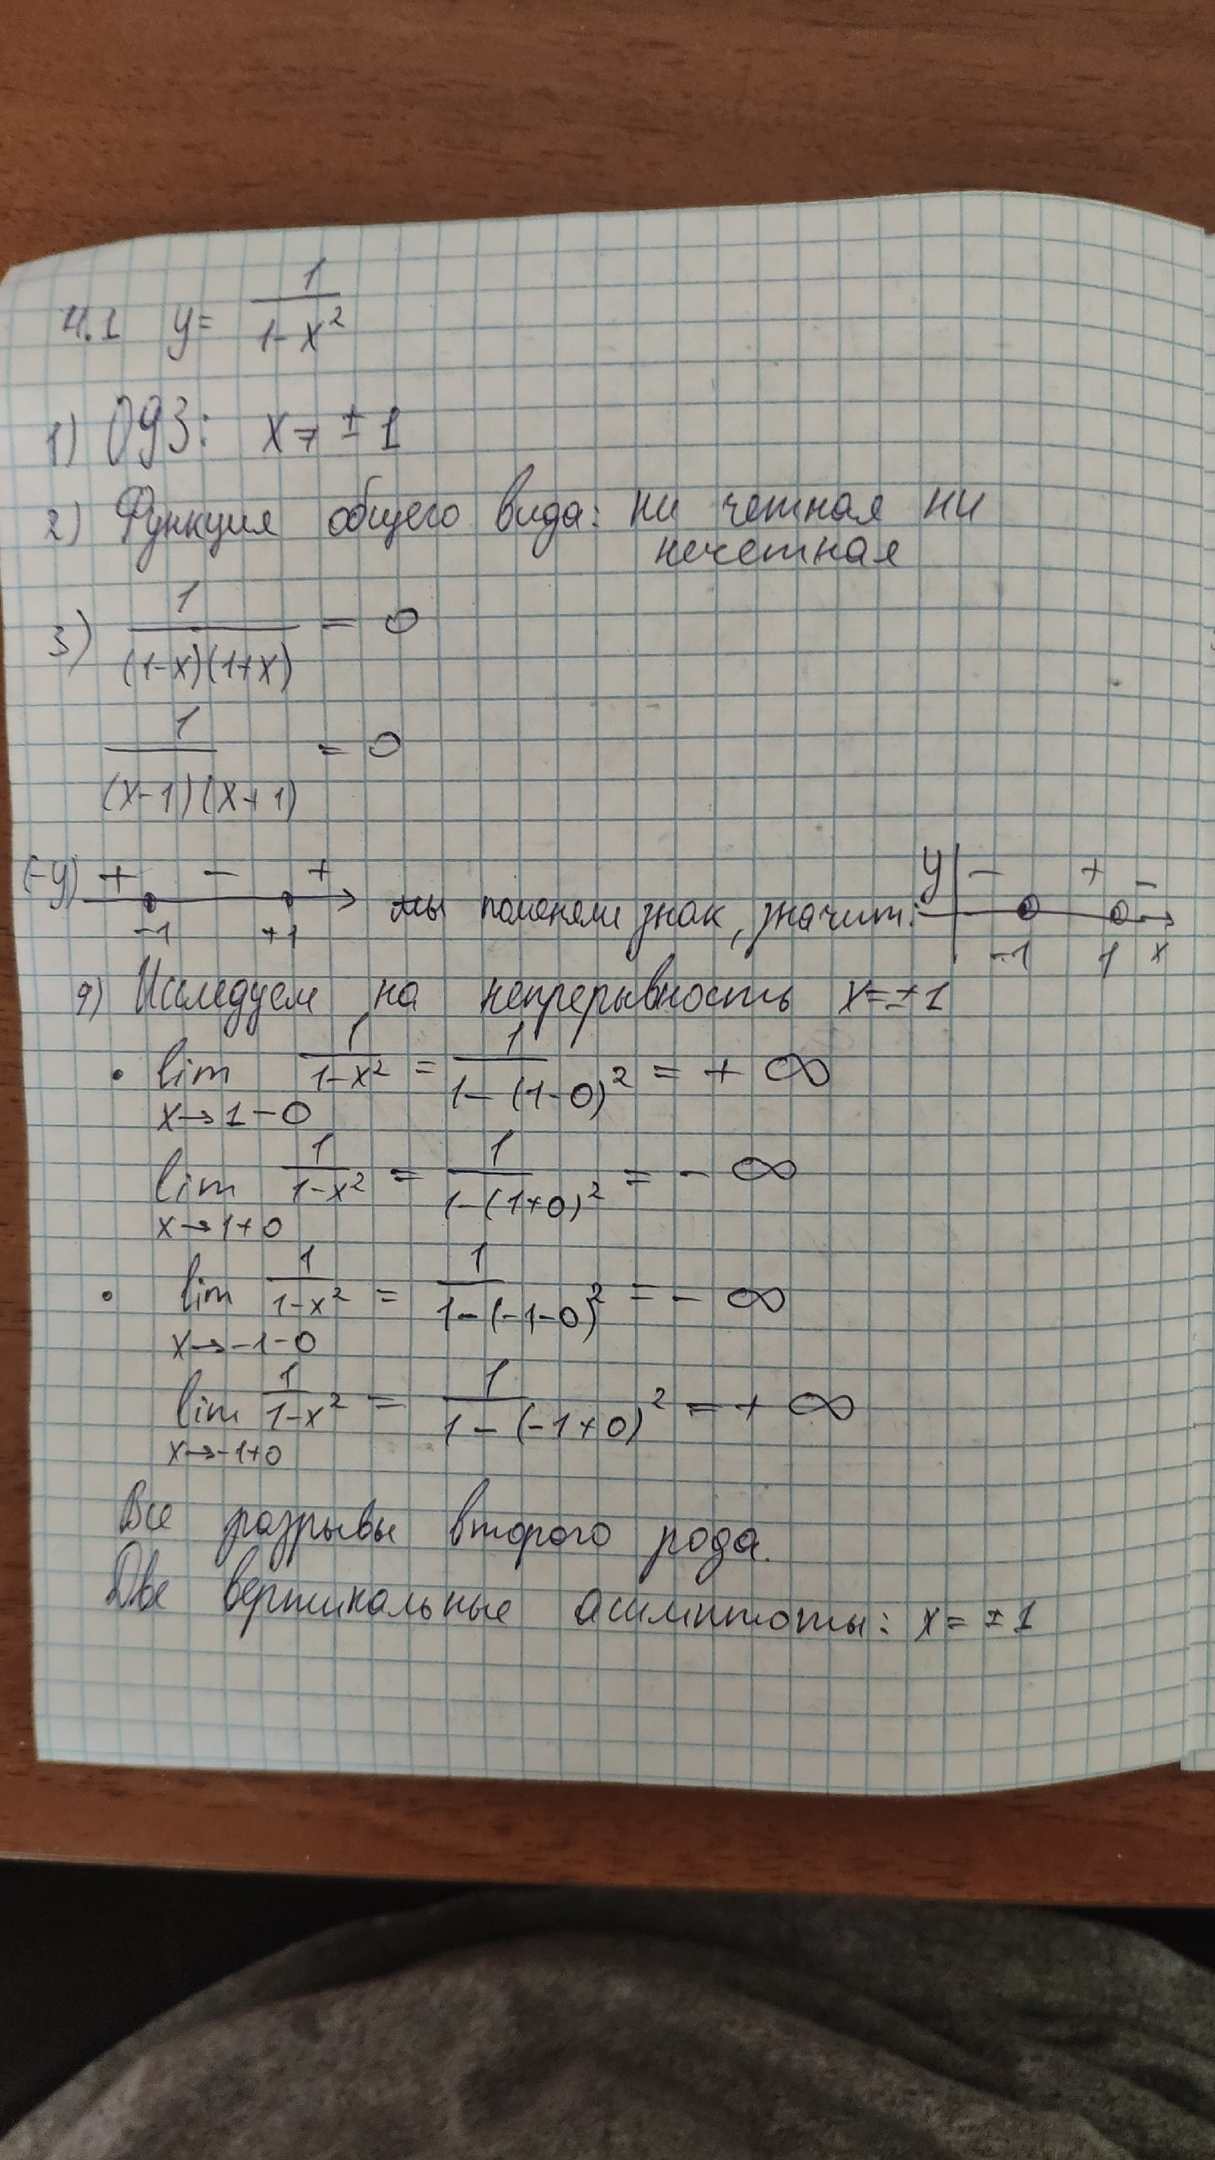 4.1 y = 1/(1-x²)
1) ОДЗ: x ≠ ±1
2) Функция общего вида: ни четная ни
нечетная
3) 1/((1-x)(1+x)) = 0
1/((x-1)(x+1)) = 0
(-y) + - + -1 +1 мы поменяли знак, значит: y - + - -1 1 x
4) Исследуем на непрерывность x = ±1
• lim x→1-0 1/(1-x²) = 1/(1-(1-0)²) = +∞
lim x→1+0 1/(1-x²) = 1/(1-(1+0)²) = -∞
• lim x→-1-0 1/(1-x²) = 1/(1-(-1-0)²) = -∞
lim x→-1+0 1/(1-x²) = 1/(1-(-1+0)²) = +∞
Все разрывы второго рода.
Две вертикальные асимптоты: x = ±1